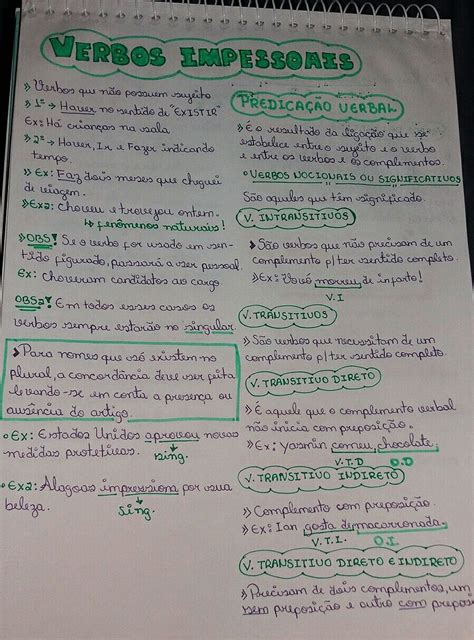 VERBOS IMPESSOAIS
» Verbos que não possuem sujeito
» 1º → Haver no sentido de "EXISTIR"
Ex: Há crianças na sala
» 2º → Haver, Ir e Fazer indicando
tempo.
» Ex: Faz dois meses que cheguei
de viagem.
» Ex2: Choveu e trovejou ontem.
↳ fenômenos naturais!
» OBS! Se o verbo for usado em sen-
tido figurado, passará a ser pessoal.
Ex: Choveram candidatos ao cargo.
OBS2! Em todos esses casos os
verbos sempre estarão no singular.
» Para nomes que só existem no
plural, a concordância deve ser feita
levando-se em conta a presença ou
ausência do artigo.
• Ex: Estados Unidos aprovou novas
medidas protetivas. sing.
• Ex2: Alagoas impressiona por sua
beleza. sing.
PREDICAÇÃO VERBAL
» É o resultado da ligação que se
estabelece entre o sujeito e o verbo
e entre os verbos e os complementos.
• VERBOS NOCIONAIS OU SIGNIFICATIVOS
São aqueles que têm significado.
V. INTRANSITIVOS
» São verbos que não precisam de um
complemento p/ ter sentido completo.
» Ex: Vovó morreu de infarto!
V.I
V. TRANSITIVOS
» São verbos que necessitam de um
complemento p/ ter sentido completo.
V. TRANSITIVO DIRETO
» É aquele que o complemento verbal
não inicia com preposição.
» Ex: Yasmin comeu chocolate.
V.T.D O.D
V. TRANSITIVO INDIRETO
» Complemento com preposição.
» Ex: Ian gosta de macarronada.
V.T.I. O.I.
V. TRANSITIVO DIRETO E INDIRETO
» Precisam de dois complementos, um
sem preposição e outro com preposi